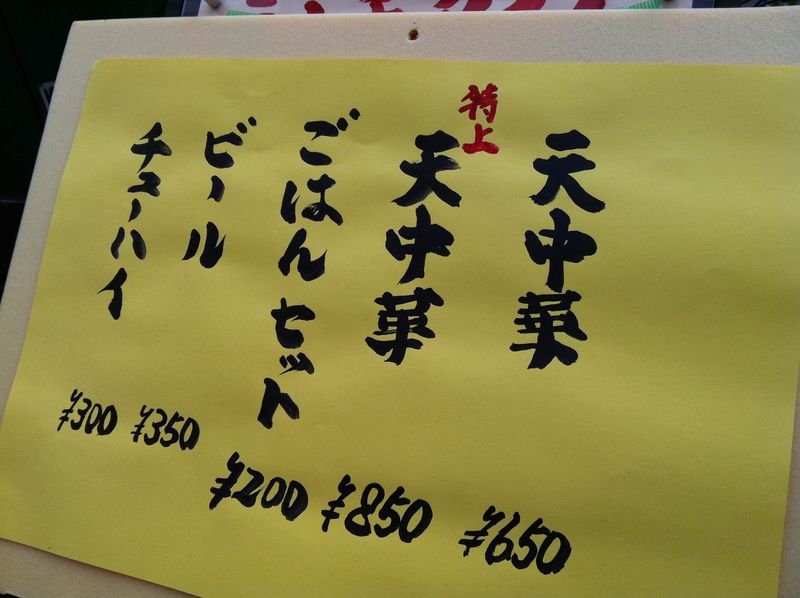 天中華
¥650
特上
天中華
¥850
ごはんセット
¥200
ビール
¥350
チューハイ
¥300